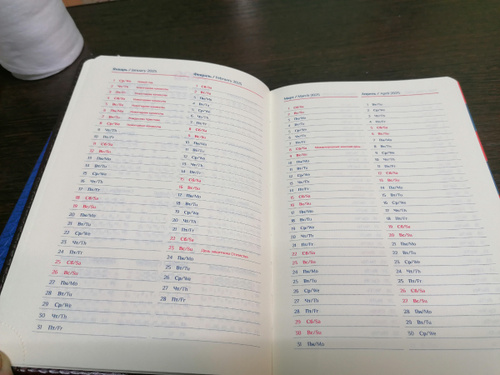 Январь / January 2025
1 Ср/We
2 Чт/Th
3 Пт/Fr
4 Сб/Sa
5 Вс/Su
6 Пн/Mo
7 Вт/Tu
8 Ср/We
9 Чт/Th
10 Пт/Fr
11 Сб/Sa
12 Вс/Su
13 Пн/Mo
14 Вт/Tu
15 Ср/We
16 Чт/Th
17 Пт/Fr
18 Сб/Sa
19 Вс/Su
20 Пн/Mo
21 Вт/Tu
22 Ср/We
23 Чт/Th
24 Пт/Fr
25 Сб/Sa
26 Вс/Su
27 Пн/Mo
28 Вт/Tu
29 Ср/We
30 Чт/Th
31 Пт/Fr
Февраль / February 2025
1 Сб/Sa
2 Вс/Su
3 Пн/Mo
4 Вт/Tu
5 Ср/We
6 Чт/Th
7 Пт/Fr
8 Сб/Sa
9 Вс/Su
10 Пн/Mo
11 Вт/Tu
12 Ср/We
13 Чт/Th
14 Пт/Fr
15 Сб/Sa
16 Вс/Su
17 Пн/Mo
18 Вт/Tu
19 Ср/We
20 Чт/Th
21 Пт/Fr
22 Сб/Sa
23 Вс/Su День защитника Отечества
24 Пн/Mo
25 Вт/Tu
26 Ср/We
27 Чт/Th
28 Пт/Fr
Март / March 2025
1 Сб/Sa
2 Вс/Su
3 Пн/Mo
4 Вт/Tu
5 Ср/We
6 Чт/Th
7 Пт/Fr
8 Сб/Sa Международный женский день
9 Вс/Su
10 Пн/Mo
11 Вт/Tu
12 Ср/We
13 Чт/Th
14 Пт/Fr
15 Сб/Sa
16 Вс/Su
17 Пн/Mo
18 Вт/Tu
19 Ср/We
20 Чт/Th
21 Пт/Fr
22 Сб/Sa
23 Вс/Su
24 Пн/Mo
25 Вт/Tu
26 Ср/We
27 Чт/Th
28 Пт/Fr
29 Сб/Sa
30 Вс/Su
31 Пн/Mo
Апрель / April 2025
1 Вт/Tu
2 Ср/We
3 Чт/Th
4 Пт/Fr
5 Сб/Sa
6 Вс/Su
7 Пн/Mo
8 Вт/Tu
9 Ср/We
10 Чт/Th
11 Пт/Fr
12 Сб/Sa
13 Вс/Su
14 Пн/Mo
15 Вт/Tu
16 Ср/We
17 Чт/Th
18 Пт/Fr
19 Сб/Sa
20 Вс/Su
21 Пн/Mo
22 Вт/Tu
23 Ср/We
24 Чт/Th
25 Пт/Fr
26 Сб/Sa
27 Вс/Su
28 Пн/Mo
29 Вт/Tu
30 Ср/We